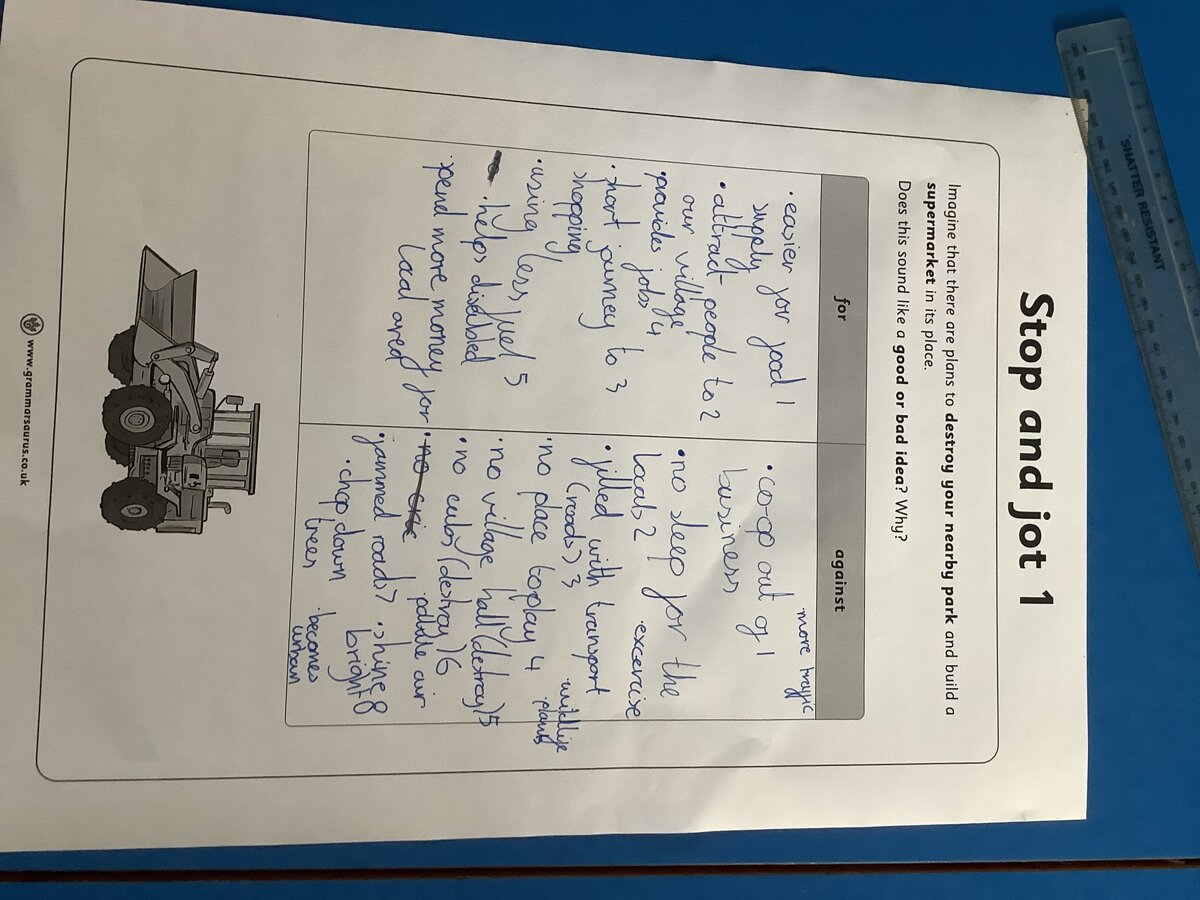 Stop and jot 1
Imagine that there are plans to destroy your nearby park and build a
supermarket in its place.
Does this sound like a good or bad idea? Why?
for
• easier for food 1
supply
• attract people to 2
our village
• provides jobs 4
• short journey to 3
shopping
• using less fuel 5
• helps disabled
• spend more money for
local area
against
• more traffic
• co-op out of 1
business
• no sleep for the
locals 2
• excercise
• filled with transport
(roads) 3
• wildlife
• no place to play 4
• plants
• no village hall (destroy) 5
• no cubs (destroy) 6
• no
• pollute air
• jammed roads 7
• shine 8
bright
• chop down
trees
• becomes
urban
www.grammarsaurus.co.uk
SHATTER RESISTANT